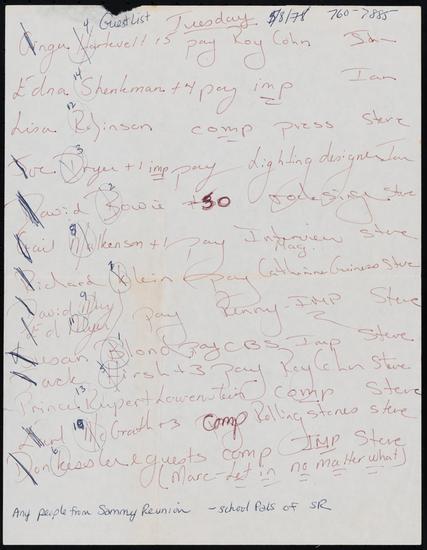 4 Guest List Tuesday 5/8/78 760-7885
Hartwell +3 pay Roy Cohn Ian
14 Edna Shenkman +4 pay imp Ian
12 Lisa Robinson comp press Steve
3 Joe Dryer +1 imp pay Lighting designer Ian
2 David Bowie +50 Steve
8 Gail Wilkenson +1 pay Interview Mag. Steve
7 Richard Klein pay Catherine Guiness Steve
9 David
11 Ed Dyer pay Renny-IMP Steve
1 Susan Blond pay CBS Imp Steve
5 Jack Hirsh +3 pay Roy Cohn Steve
13 Prince Rupert Lowenstein comp Steve
10 Earl McGrath +3 comp Rolling Stones Steve
6 Don Kessler & guests comp IMP Steve
(Marc - Let in no matter what)
Any people from Sammy Reunion - school Pals of SR